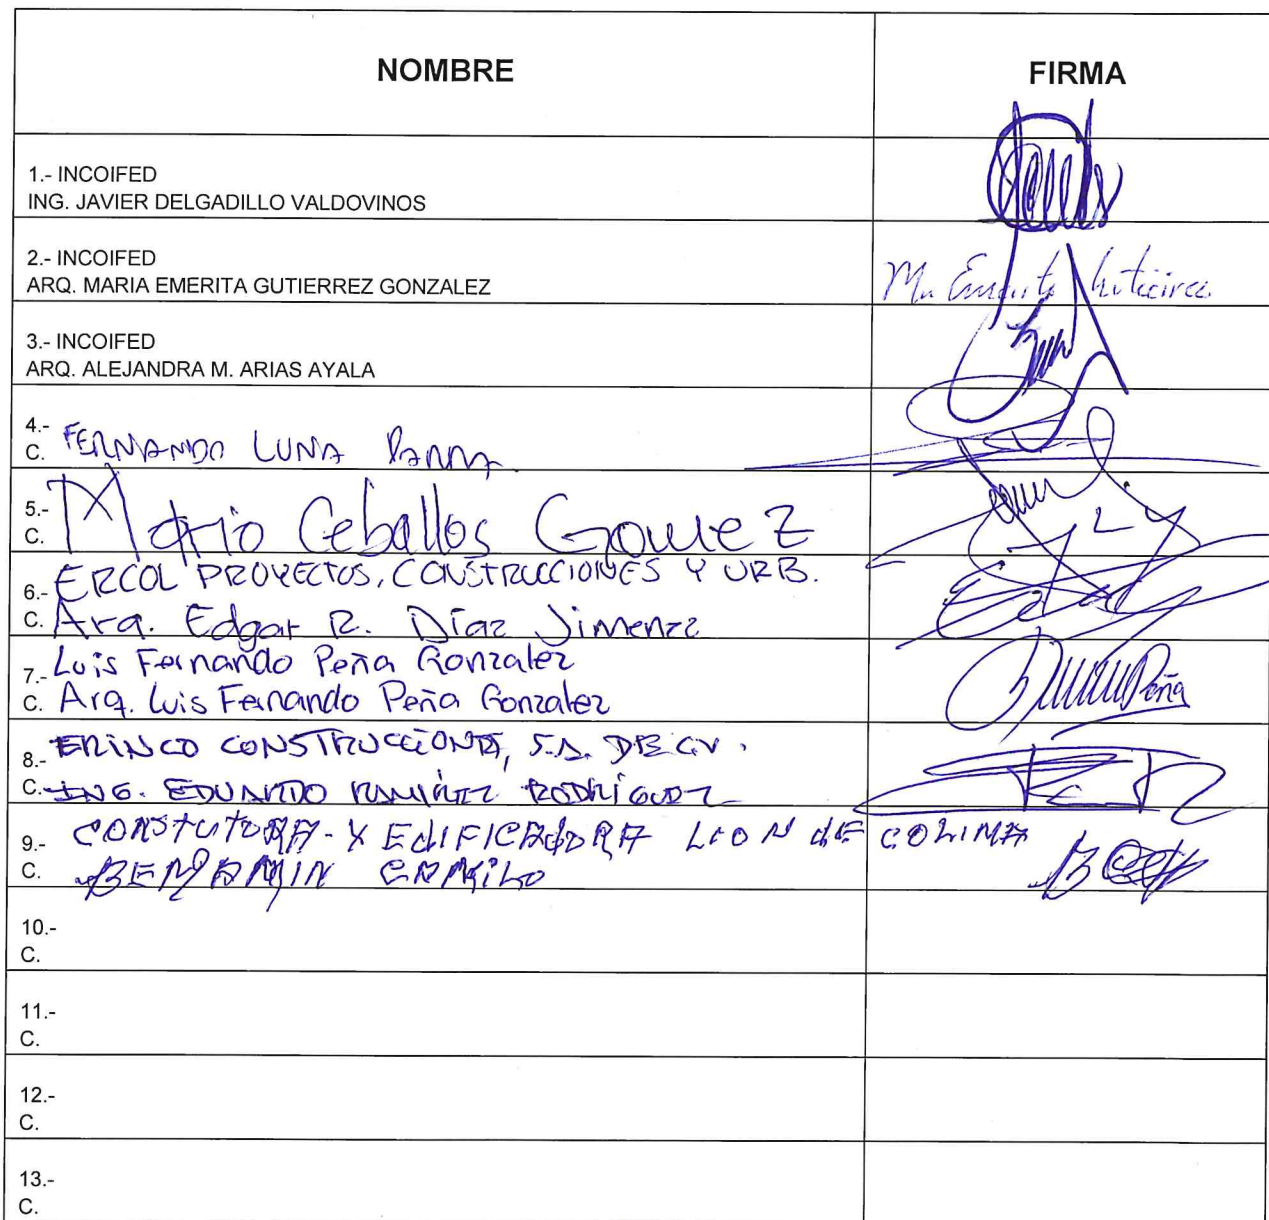 NOMBRE FIRMA
1.- INCOIFED
ING. JAVIER DELGADILLO VALDOVINOS
2.- INCOIFED
ARQ. MARIA EMERITA GUTIERREZ GONZALEZ Ma Emerita Gutiérrez
3.- INCOIFED
ARQ. ALEJANDRA M. ARIAS AYALA
4.-
C. FERNANDO LUNA PARRA
5.-
C. Mario Ceballos Gomez
6.- ERCOL PROYECTOS, CONSTRUCCIONES Y URB.
C. Arq. Edgar R. Díaz Jimenez
7.- Luis Fernando Peña Gonzalez
C. Arq. Luis Fernando Peña Gonzalez Peña
8.- ERINCO CONSTRUCCIONES, S.A. DE C.V.
C. ING. EDUARDO RAMIREZ RODRIGUEZ
9.- CONSTUTORA - Y EdIFICAdORA LEON dE COLIMA
C. BENJAMIN CAMRILO
10.-
C.
11.-
C.
12.-
C.
13.-
C.